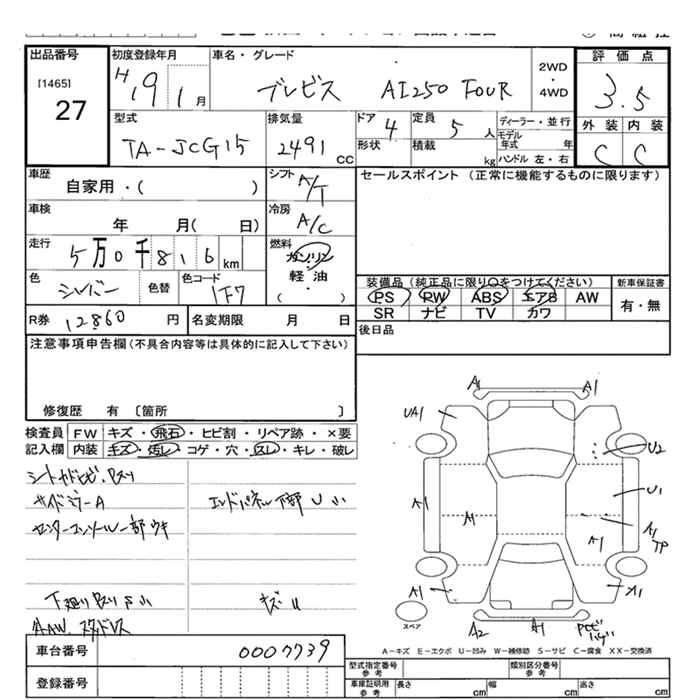 出品番号
[1465]
27
初度登録年月
H19 1月
車名・グレード
ブレビス AI250 FOUR
2WD
・
4WD
評価点
3.5
外装 内装
C C
型式
TA-JCG15
排気量
2491 CC
ドア 4
形状
定員 5 人
積載 kg
ディーラー・並行
モデル
年式 年
ハンドル 左・右
車歴
自家用・( )
シフト A/T
セールスポイント (正常に機能するものに限ります)
車検
年 月( 日)
冷房 A/C
走行 5万0千816km
燃料
ガソリン
軽・油
( ・ )
色 シルバー
色替
色コード 1F7
装備品(純正品に限り○をつけてください)
PS PW ABS エアB AW
SR ナビ TV カワ
新車保証書
有・無
R券 12860 円
名変期限 月 日
後日品
注意事項申告欄(不具合内容等は具体的に記入して下さい)
修復歴 有 〔箇所 〕
検査員 FW キズ・飛石・ヒビ割・リペア跡・×要
記入欄 内装 キズ・汚レ・コゲ・穴・スレ・キレ・破レ
サイドミラーA
エンドパネル下部U小
センターコンソール一部ウキ
下廻り
キズU
AAW. スタッドレス
A1 A1
UA1
U2
A1 A1 U1
A1 A1
TP
A1 A1
スペア
A2 A1
A-キズ E-エクボ U-凹み W-補修跡 S-サビ C-腐食 XX-交換済
車台番号 0007739
登録番号
型式指定番号
参考
類別区分番号
参考
車庫証明用
参考
長さ cm 幅 cm 高さ cm